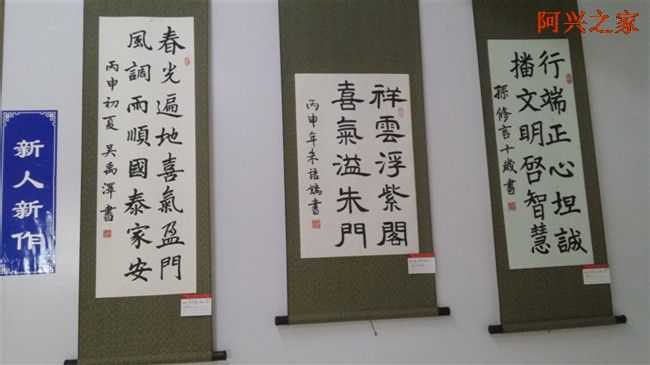 阿兴之家
新人新作
春光遍地喜氣盈門
風調雨順國泰家安
丙申初夏 吴禹澤書
祥雲浮紫閣
喜氣溢朱門
丙申年朱語嫣書
行端正心坦誠
播文明啓智慧
孫修言十歲書